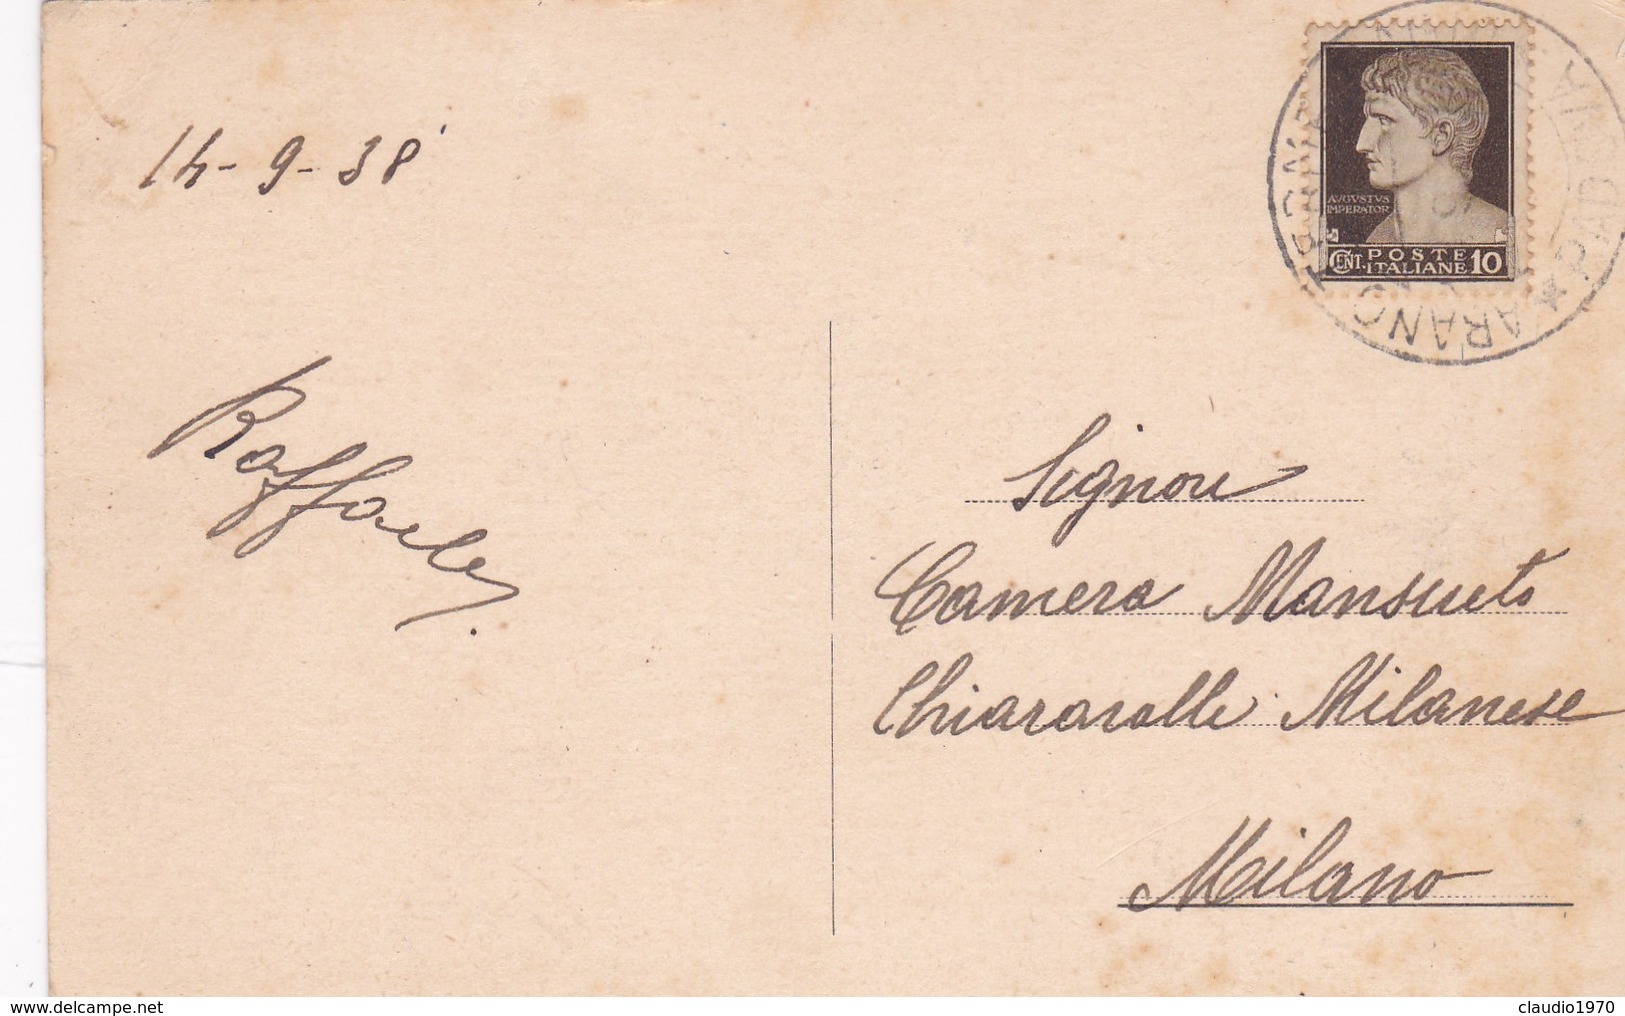 14-9-38
AVGVSTVS
IMPERATOR
CENT. POSTE ITALIANE 10
Raffaele
Signore
Camera Mansueto
Chiaravalle Milanese
Milano
www.delcampe.net
claudio1970